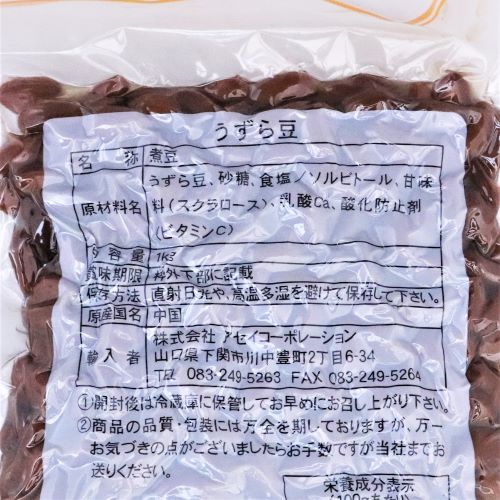 うずら豆
名 称 煮豆
原材料名 うずら豆、砂糖、食塩／ソルビトール、甘味
料(スクラロース)、乳酸Ca、酸化防止剤
(ビタミンC)
内容量 1Kg
賞味期限 枠外下部に記載
保存方法 直射日光や、高温多湿を避けて保存して下さい。
原産国名 中国
輸入者 株式会社 アセイコーポレーション
山口県下関市川中豊町2丁目6-34
TEL 083-249-5263 FAX 083-249-5264
①開封後は冷蔵庫に保管してお早めにお召し上がり下さい。
②商品の品質・包装には万全を期しておりますが、万一
お気づきの点がございましたらお手数ですが当社までお
送りください。
栄養成分表示